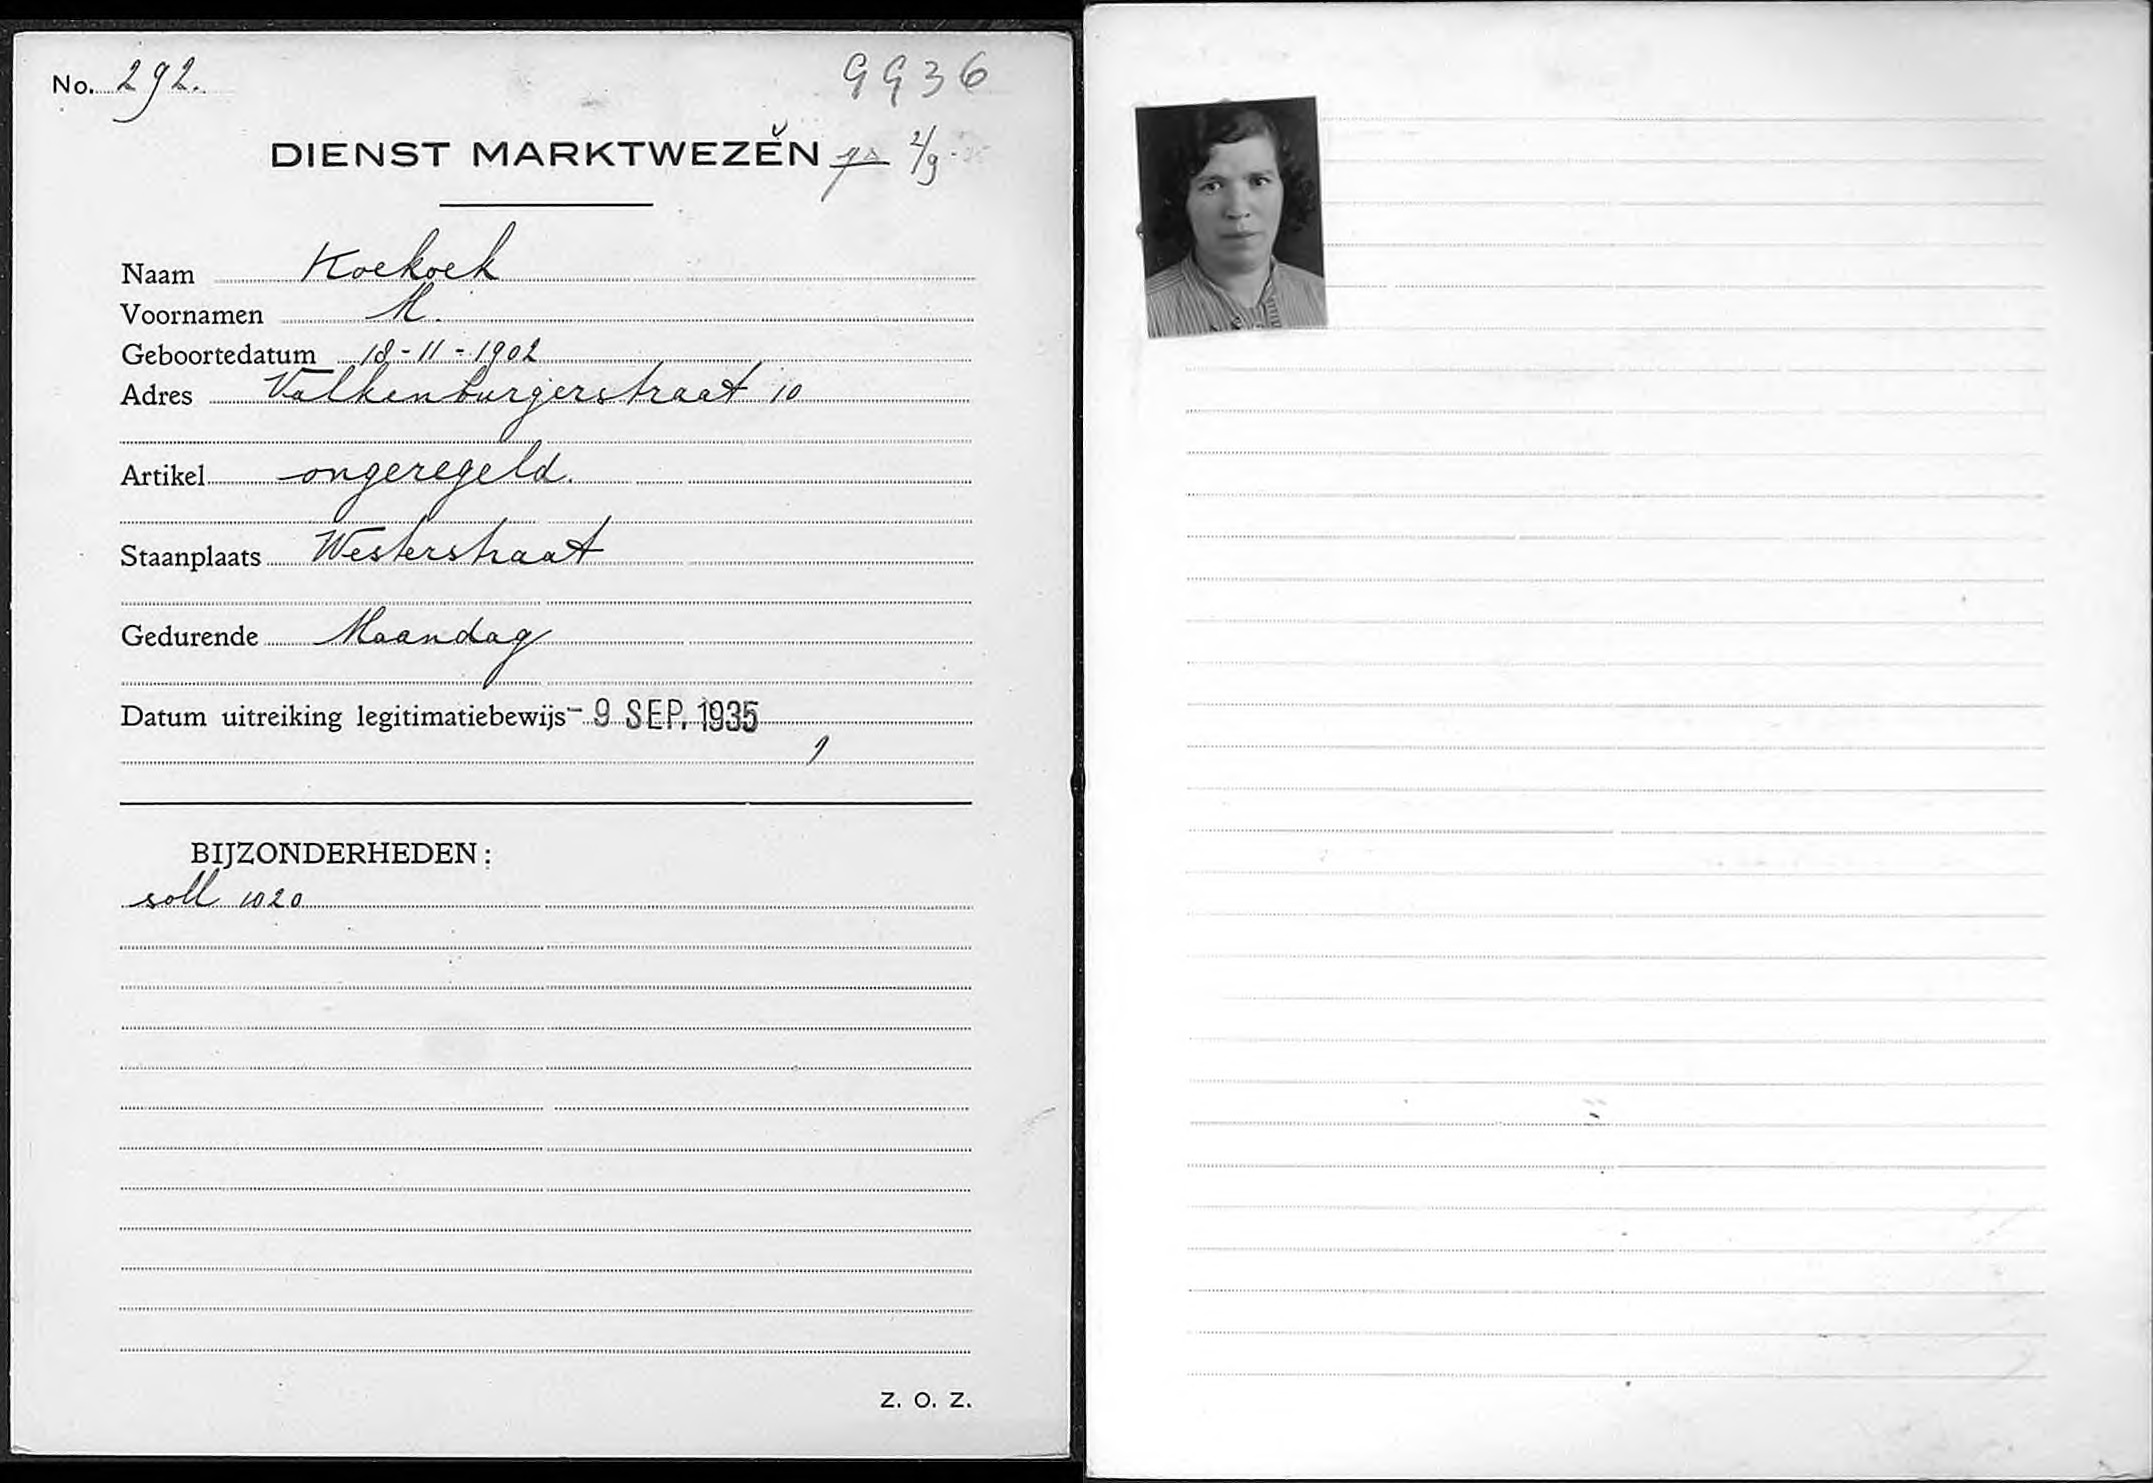 No. 292.
9936
DIENST MARKTWEZEN
2/9
Naam Koekoek
Voornamen M.
Geboortedatum 18-11-1902
Adres Valkenburgerstraat 10
Artikel ongeregeld.
Staanplaats Westerstraat
Gedurende Maandag
Datum uitreiking legitimatiebewijs - 9 SEP. 1935
BIJZONDERHEDEN:
soll 1020
Z. O. Z.